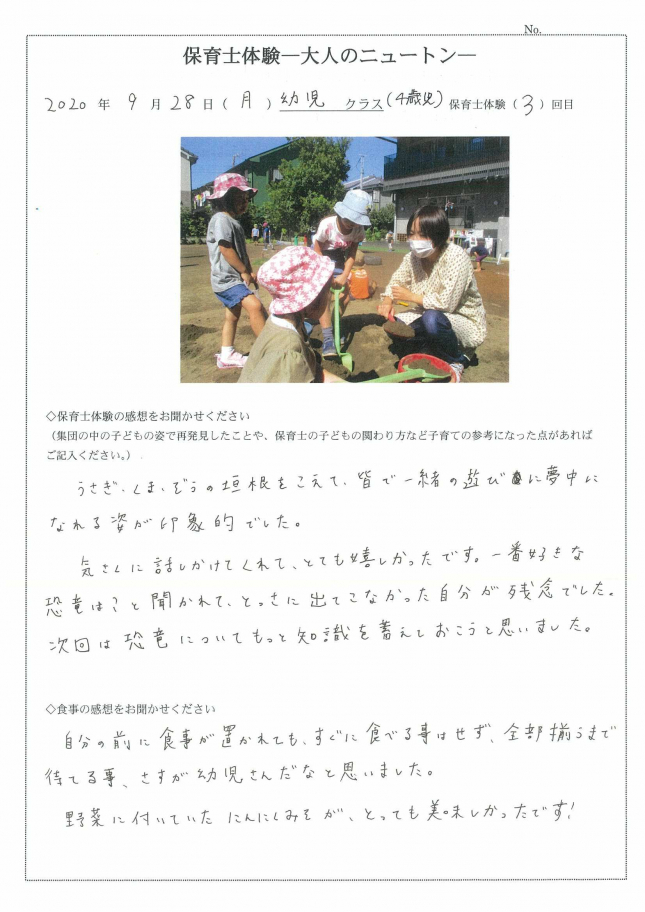 No.
保育士体験―大人のニュートン―
2020 年 9 月 28 日 ( 月 ) 幼児 クラス (4歳児) 保育士体験 ( 3 ) 回目
◇保育士体験の感想をお聞かせください
（集団の中の子どもの姿で再発見したことや、保育士の子どもの関わり方など子育ての参考になった点があれば
ご記入ください。）
うさぎ、くま、ぞうの垣根をこえて、皆で一緒の遊びに夢中に
なれる姿が印象的でした。
気さくに話しかけてくれて、とても嬉しかったです。一番好きな
恐竜は?と聞かれて、とっさに出てこなかった自分が残念でした。
次回は恐竜についてもっと知識を蓄えておこうと思いました。
◇食事の感想をお聞かせください
自分の前に食事が置かれても、すぐに食べる事はせず、全部揃うまで
待てる事、さすが幼児さんだなと思いました。
野菜に付いていたにんにくみそが、とっても美味しかったです!